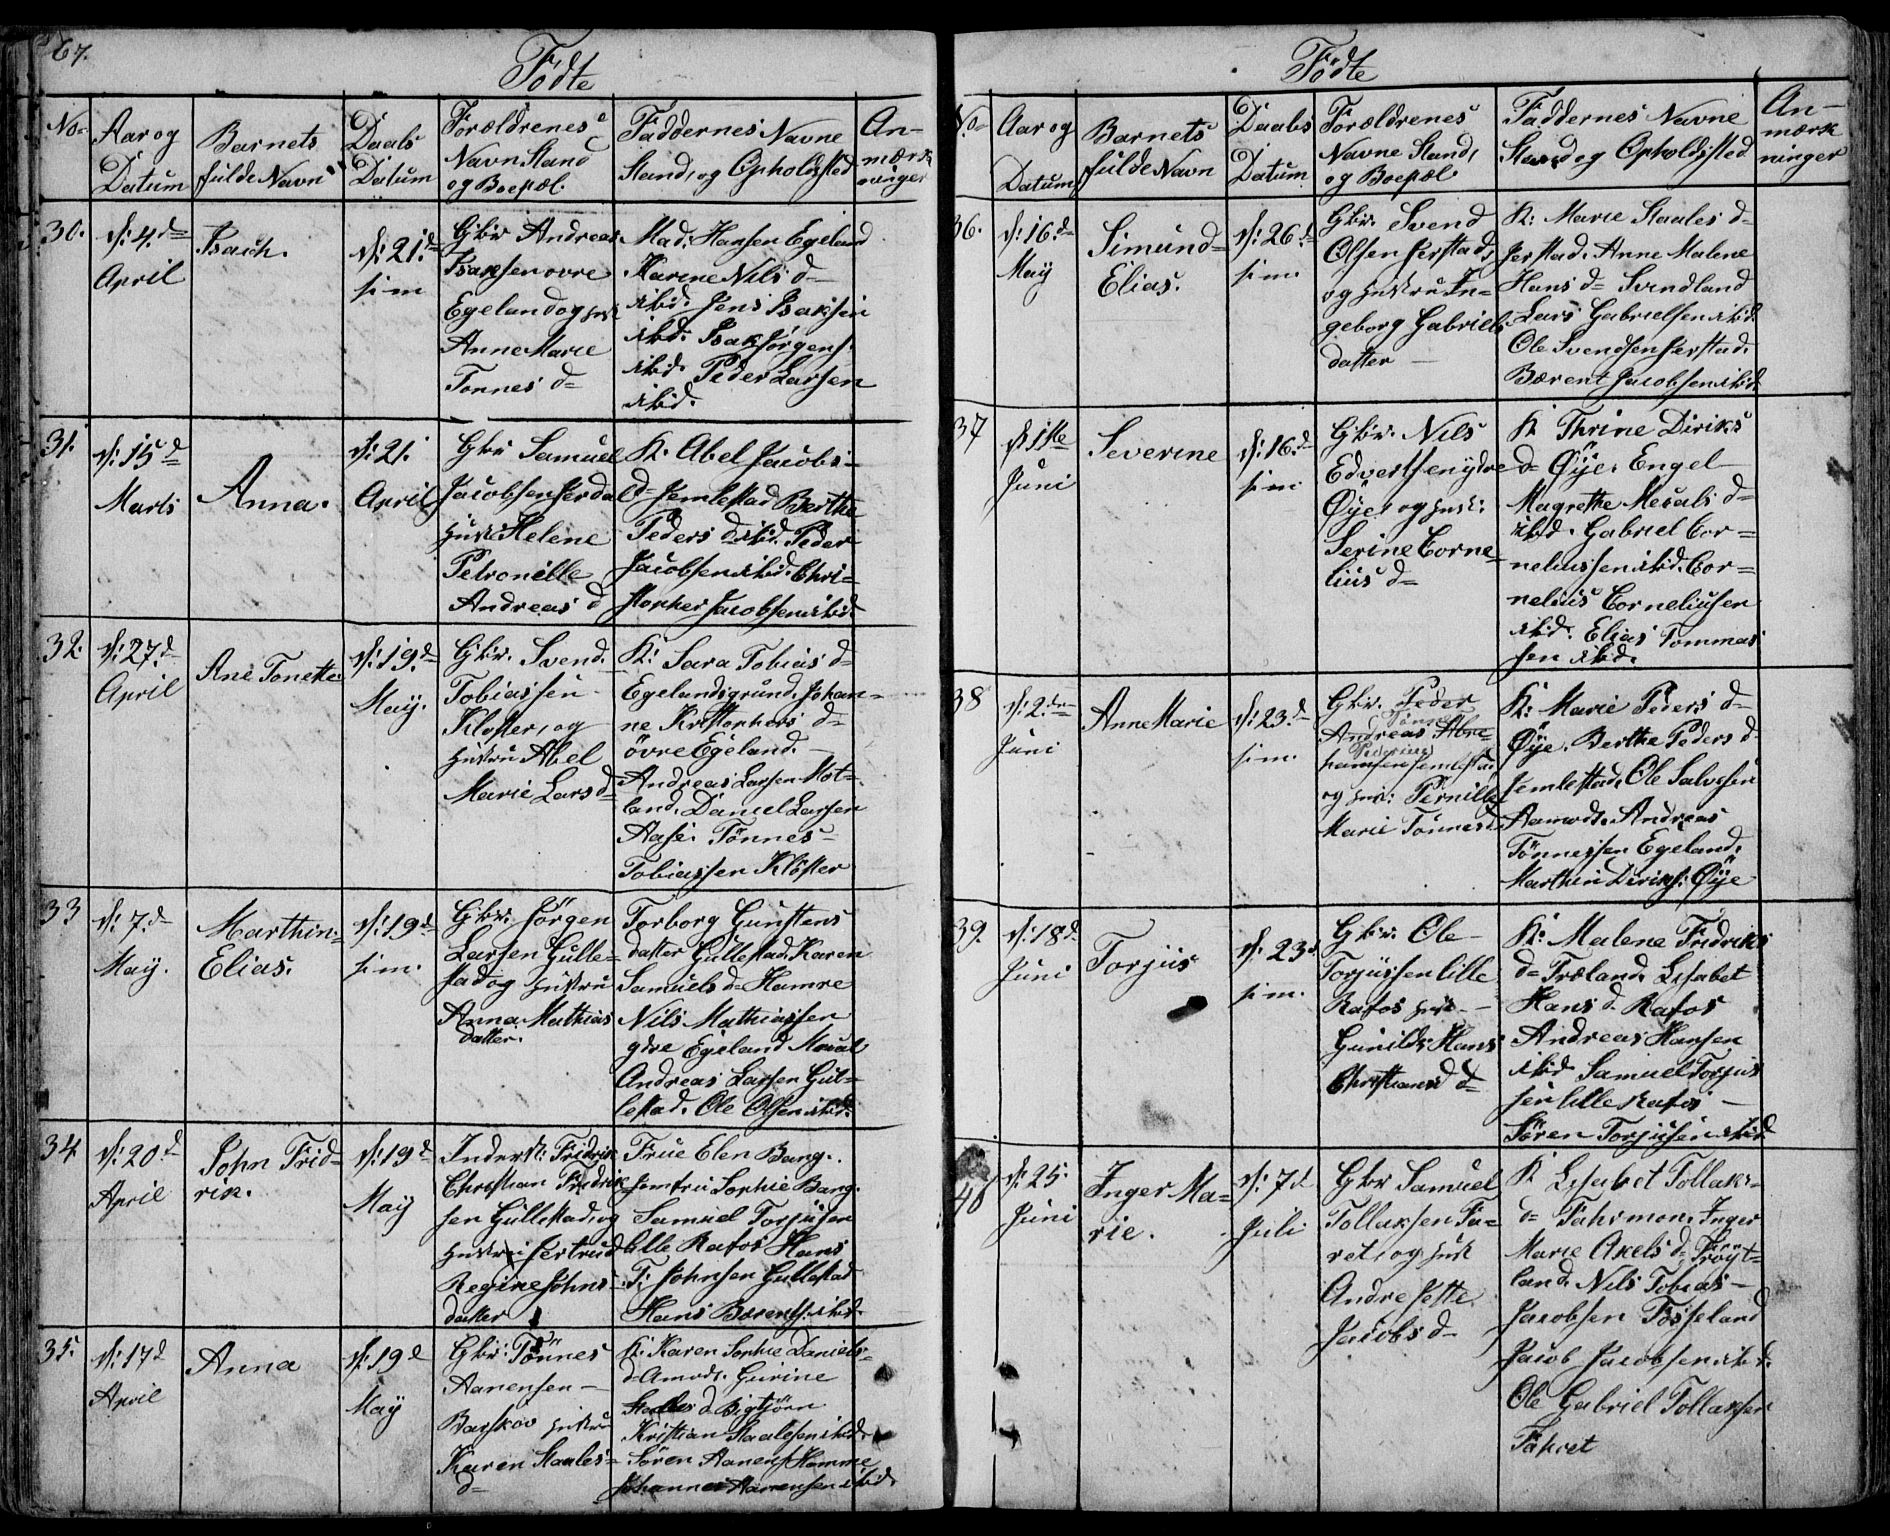 67.
Födte
No
Aar og
Datum
Barnets
fulde Navn
Daabs
Datum
Forældrenes
Navn Stand
og Boepæl.
Faddernes Navne
Stand, og Opholdsted
An-
mærk
ninger
30.
d: 4.de
April
Isach.
d: 21.d
s: m
Gbr Andreas
Isaksen övre
Egeland og Hust
Anne Marie
Tonnes d=
Mad: Hansen Egeland
Karine Nils d=
ibid. Jens Isaksen
ibd. Isak Jörgens.
ibid. Peder Larsen
ibid.
31.
d: 15d
Marts
Anna.
d: 21.
April
Gbr Samuel
Jacobsen Jerda
Hustr Helene
Petronille
Andreas d
K. Abel Jacobs-
d= Jemlestad Berthe
Peders d ibid. Peder
Jacobsen ibid. Chri-
stopher Jacobsen ibid
32.
d: 27.d
April
Ane Tonette
d: 19.d
May.
Gbr. Svend.
Tobiassen
Kloster, og
Hustru Abel
Marie Lars d
K: Sara Tobias d=
Egelandsgrund. Johan=
ne Kristophers d=
övre Egeland.
Andreas Larsen Mot-
land. Daniel Larsen
Aase. Tönnes
Tobiassen Klöster
33
d: 7.d
May.
Marthin
Elias.
d: 19d
s: m.
Gbr. Jörgen
Larsen Gulle=
stad og Hustru
Anna Mathias
datter.
Torborg Gunstens
datter Gullestad. Karen
Samuels d= Hamre
Nils Mathiassen
ydre Egeland
Andreas Larsen Gul=
lestad. Ole Olsen ibid.
34
d: 20.d
April
John Frid=
rik.
d: 19d
May
Inderst: Fridrik
Christian Fredrik
sen Gullestad, og
Hustru Jertrud
Regine Johns-
datter
Frue Elen Bang.
Jomfru Sophie Bang.
Samuel Torjusen
lille Rafos Hans
T: Johnsen Gullestad
Hans Bærents. ibid.
35.
d: 17d
April
Anna
d: 19d
May
Gbr: Tönnes
Aanensen
Barskov Hustru
Karen Staales=
d=
K: Karen Sophie Daniels=
d= Amodt. Gurine
Staales d Bigtjörn
Kristian Staalesen ibid.
Sören Aanens. Homme
Johannes Aanensen ibid.
Födte
No
Aar og
Datum
Barnets
fulde Navn
Daabs
Datum
Forældrenes
Navne Stand,
og Boepæl
Faddernes Navne
Stand og Opholdsted
An-
mærk
ninger
36.
d: 16.d
May
Simund=
Elias.
d: 26.d
s: m.
Gbr. Svend
Olsen Jerstad,
og Hustru In=
geborg Gabriels
datter
K: Marie Staales d=
Jerstad. Anne Malene
Hans d= Svindland
Lars Gabrielsen ibid.
Ole Svendsen Jerstad.
Bærent Jacobsen ibid.
37
d: 1te
Juni
Severine
d: 16.d
s: m.
Gbr. Nils
Edvertsen ydre
Öye, og Hust:
Serine Corne
lius d=
K Thrine Diriks
d= Öye. Engel
Magrethe Mecals d=
ibd. Gabriel Cor=
neliussen ibid. Cor=
nelius Corneliusen
ibid. Elias Tommas
sen ibid.
38
d: 2.den
Juni
Anne Marie
d: 23.d
s: m.
Gbr. Peder
Tönnes
Andreas Abra-
Pedersen
hamsen Jemlestad
og Hus: Pernille
Marie Tönnes d
K: Marie Peders d=
Öye. Berthe Peders d
Jemlestad. Ole Salvesen
Aamodt. Andreas
Tönnessen Egeland.
Marthin Diriks: Öye
39.
d: 18d
Juni
Torjus
d: 23d
s: m.
Gbr. Ole
Torjussen lille
Rafos Hus
Gunild Hans
Christians d=
K: Malene Fridriks
d= Træland. Lisabet
Hans d. Rafos
Andreas Hansen
ibid Samuel Torjus
sen lille Rafos
Sören Torjusen ibid
40
d: 25.
Juni
Inger Ma=
rie.
d: 7d
Juli
Gbr Samuel
Tollaksen Fa=
ret, og Hust
Andre Jette
Jacobs d=
K Lisabet Tollaks-
d= Fahrmon. Inger
Marie Axels d= Fröyt-
land. Nils Tobias-
Jacobsen Fösseland
Jacob Jacobsen ibid.
Ole Gabriel Tollaksen
Fahret